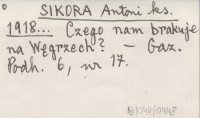 SIKORA Antoni ks.
1918... Czego nam brakuje
na Węgrzech? – Gaz.
Podh. 6, nr 17.